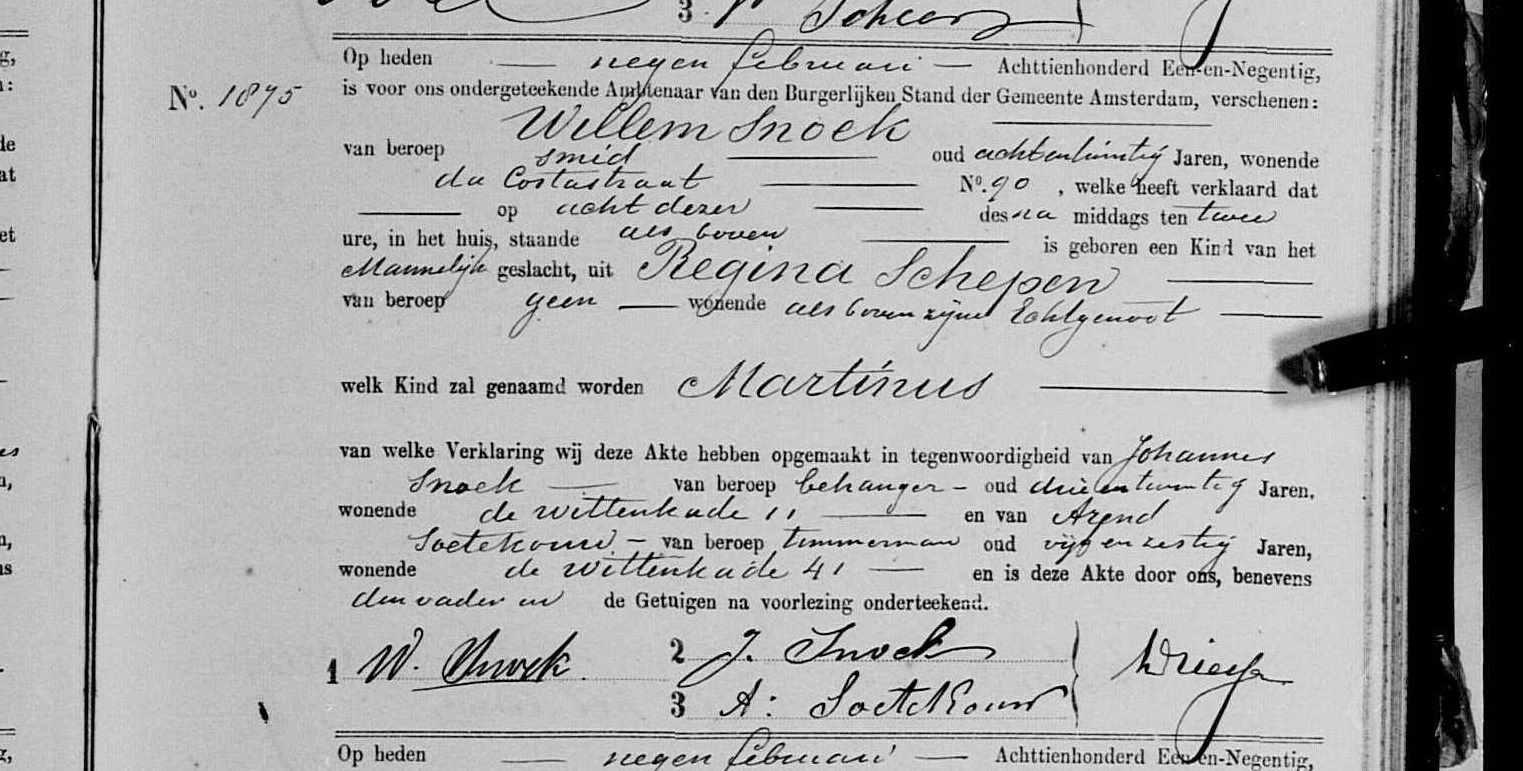 3
Op heden — negen februari — Achttienhonderd Een-en-Negentig,
No. 1895
is voor ons ondergeteekende Ambtenaar van den Burgerlijken Stand der Gemeente Amsterdam, verschenen:
Willem Snoek
van beroep smid oud achtentwintig Jaren, wonende
da Costastraat No. 90, welke heeft verklaard dat
op acht dezer des na middags ten twee
ure, in het huis, staande als boven is geboren een Kind van het
Mannelijk geslacht, uit Regina Schepen
van beroep geen — wonende als boven zijne Echtgenoot
welk Kind zal genaamd worden Martinus
van welke Verklaring wij deze Akte hebben opgemaakt in tegenwoordigheid van Johannes
Snoek van beroep behanger – oud drieentwintig Jaren,
wonende de wittenkade 11 en van Arend
Soetekouw – van beroep timmerman oud vijf en zestig Jaren,
wonende de wittenkade 41 en is deze Akte door ons, benevens
den vader en de Getuigen na voorlezing onderteekend.
1 W. Snoek 2 J. Snoek
3 A: Soetekouw
Op heden — negen februari — Achttienhonderd Een-en-Negentig,